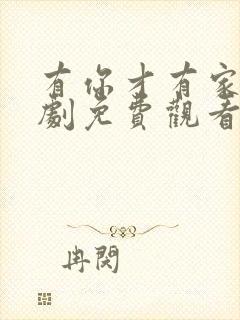 有你才有家
劇免費觀看
冉閔